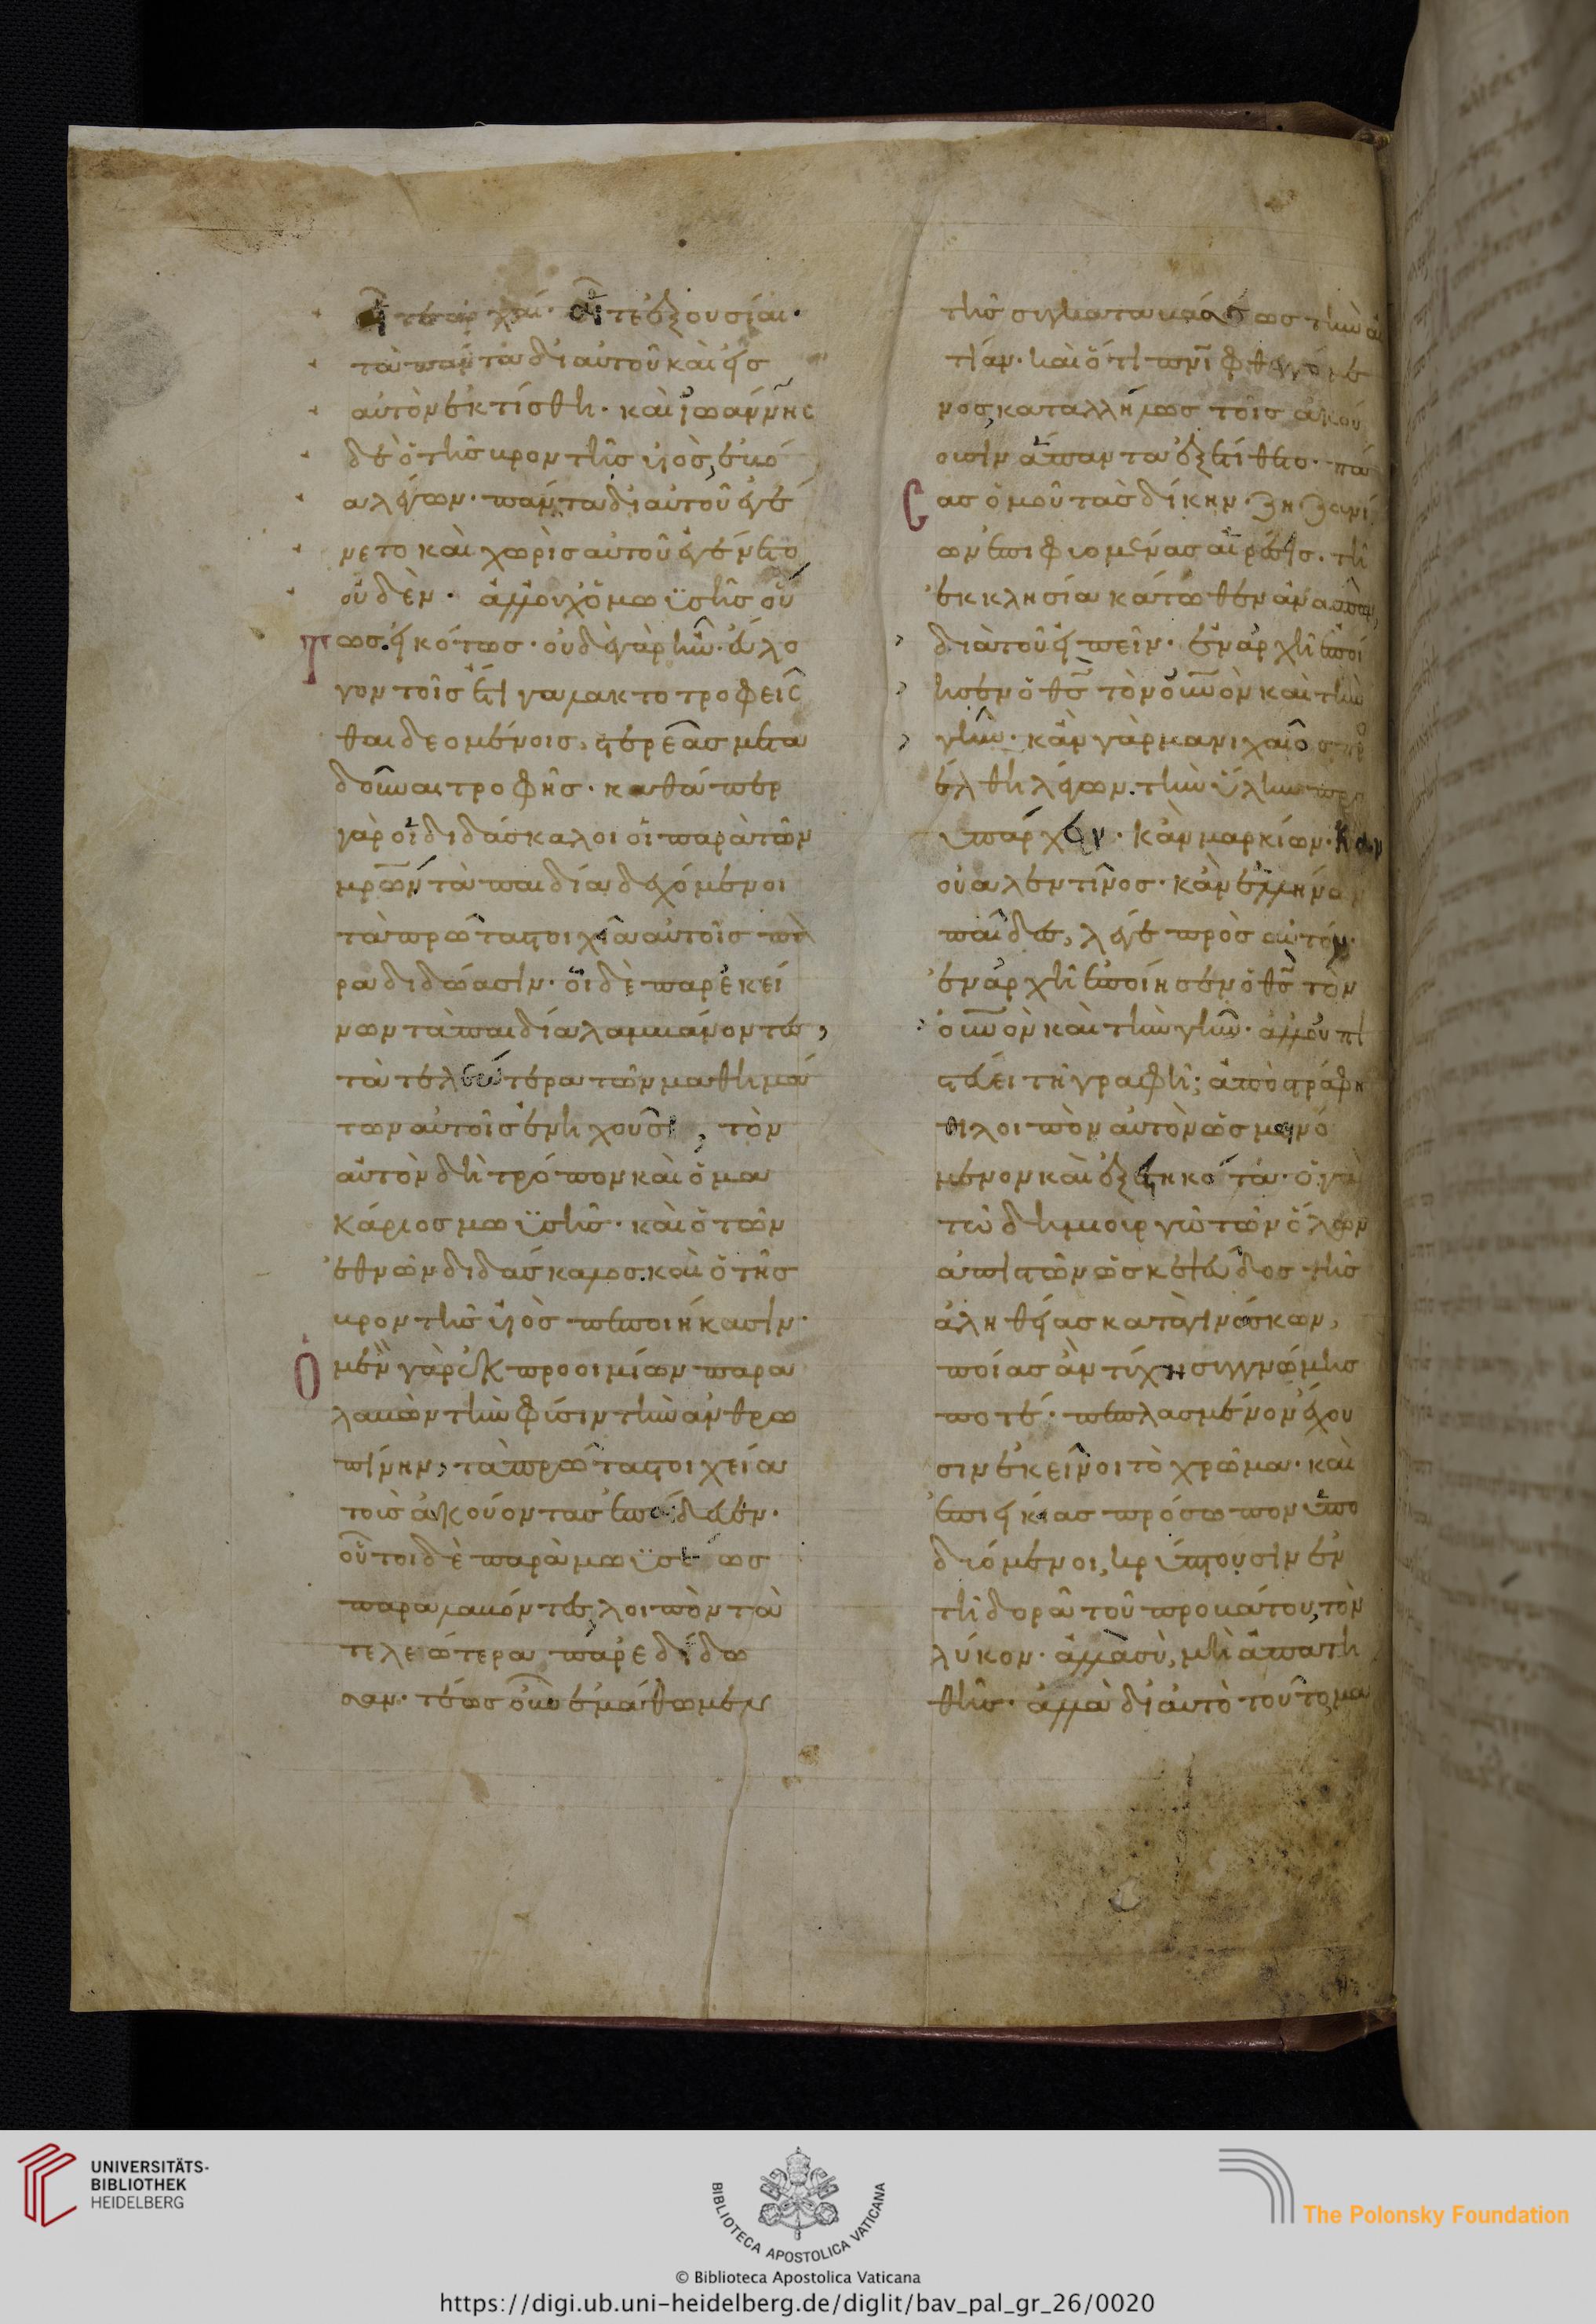 εἴτε ἀρχαί· εἴτε ἐξουσίαι·
τὰ πάντα δι' αὐτοῦ καὶ εἰς
αὐτὸν ἐκτίσθη· καὶ ἰωάννης
δὲ ὁ τῆς βροντῆς υἱὸς, ἐβό
α λέγων· πάντα δι' αὐτοῦ ἐγέ
νετο καὶ χωρὶς αὐτοῦ ἐγένετο
οὐδὲν· ἀλλ' οὐχ ὁ μωϋσῆς οὕ
τως. εἰκότως· οὐδὲ γὰρ ἦν εὔλο
γον τοῖς ἔτι γαλακτοτροφεῖς
θαι δεομένοις, στερεᾶς μετα
δοῦναι τροφῆς· καθάπερ
γὰρ οἱ διδάσκαλοι οἱ παρὰ τῶν
μρῶν τὰ παιδία δεχόμενοι
τὰ πρῶτα στοιχεῖα αὐτοῖς πα
ραδιδόασιν· οἱ δὲ παρ' ἐκεί
νων τὰ παιδία λαμβάνοντες,
τὰ τελεώτερα τῶν μαθημά
των αὐτοῖς ἐνηχοῦσι, τὸν
αὐτὸν δὴ τρόπον καὶ ὁ μα
κάριος μωϋσῆς· καὶ ὁ τῶν
ἐθνῶν διδάσκαλος. καὶ ὁ τῆς
βροντῆς υἱὸς πεποιήκασιν·
Ὁ μὲν γὰρ ἐκ προοιμίων παρα
λαβὼν τὴν φύσιν τὴν ἀνθρω
πίνην, τὰ πρῶτα στοιχεία
τοὺς ἀκούοντας ἐπαίδευεν·
οὗτοι δὲ παρὰ μωϋσέως
παραλαβόντες λοιπὸν τὰ
τελεώτερα παρεδίδο
σαν· τέως οὖν ἐμάθομεν
τῆς συγκαταβάσεως τὴν αἰ
τίαν· καὶ ὅτι πνι φθεγγόμε
νος, καταλλήλως τοῖς ἀκού
ουσιν ἅπαντα ἐξετίθετο· πά
σας ὁμοῦ τὰς δίκην ζιζανί
ων ἐπιφυομένας αἱρέσεις. τῇ
ἐκκλησία κάτωθεν ἀνασπῶν,
διὰ τοῦ εἰπεῖν· ἐν ἀρχῇ ἐποί
ησεν ὁ θς τὸν οὐνὸν καὶ τὴν
γῆν· κἂν γὰρ μανιχαῖος προ
έλθη λέγων. τὴν ὕλην προ
υπάρχειν· κἂν μαρκίων· κἂν
οὐαλεντῖνος· κἂν ἑλλήνων
παῖδες, λέγε πρὸς αὐτόν·
ἐν ἀρχῇ ἐποίησεν ὁ θς τὸν
οὐνὸν καὶ τὴν γῆν· ἀλλ' οὐ πι
στεύει τῇ γραφῇ; ἀποστράφη
θι λοιπὸν αὐτὸν ὡς μαινό
μενον καὶ ἐξεστηκότα· ὁ γὰρ
τῷ δημιουργῷ τῶν ὅλων
ἀπιστῶν ὡς κ ψεῦδος τῆς
ἀληθείας καταγινώσκων,
ποίας ἂν τύχη συγγνώμης
ποτέ· πεπλασμένον ἔχου
σιν ἐκεῖνοι τὸ χρῶμα· καὶ
ἐπιεικίας πρόσωπον ὑπο
δυόμενοι, κρύπτουσιν ἐν
τῇ δορᾷ τοῦ προβάτου, τὸν
λύκον· ἀλλὰ σὺ, μὴ ἀπατη
θῇς· ἀλλὰ δι' αὐτὸ τοῦτο μα
UNIVERSITÄTS-
BIBLIOTHEK
HEIDELBERG
BIBLIOTECA APOSTOLICA VATICANA
The Polonsky Foundation
© Biblioteca Apostolica Vaticana
https://digi.ub.uni-heidelberg.de/diglit/bav_pal_gr_26/0020